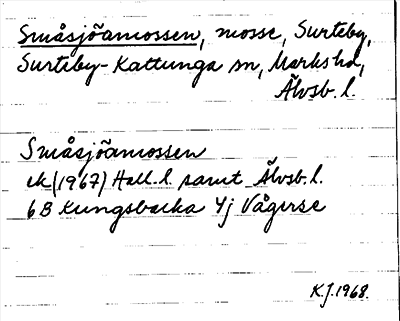 Småsjöamossen, mosse, Surteby,
Surteby-Kattunga sn, Marks hd,
Älvsb. l.
Småsjöamossen
ek (1967) Hall. l samt Älvsb. l.
6B Kungsbacka 4j Vågerse
K.J. 1968.